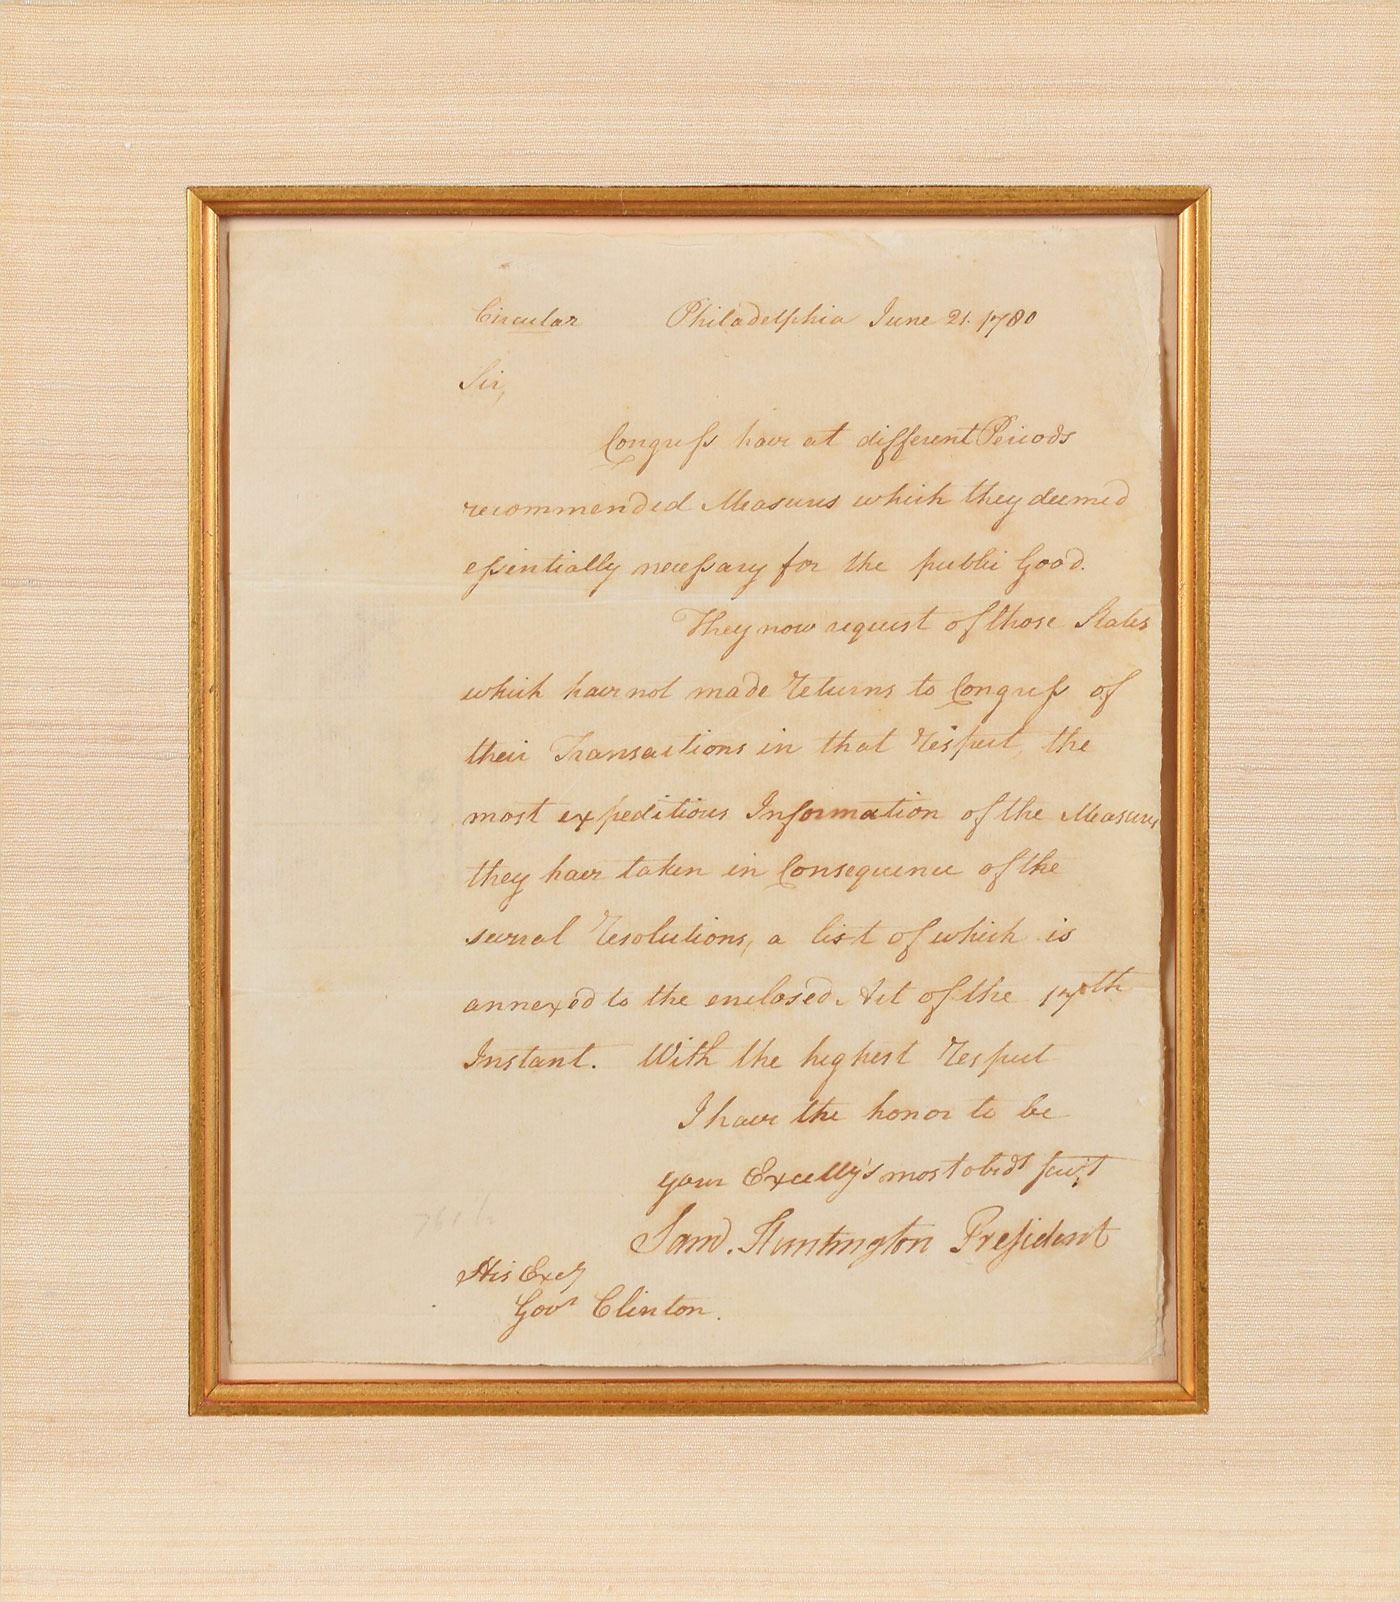 Circular Philadelphia June 21. 1780
Sir,
Congress have at different Periods
recommended Measures which they deemed
essentially necessary for the public Good.
They now request of those States
which have not made Returns to Congress of
their Transactions in that Respect, the
most expeditious Information of the Measures
they have taken in Consequence of the
several Resolutions, a list of which is
annexed to the enclosed Act of the 17th
Instant. With the highest Respect
I have the honor to be
your Excelly's most obedt servt
Saml. Huntington President
His Excy
Govr Clinton.